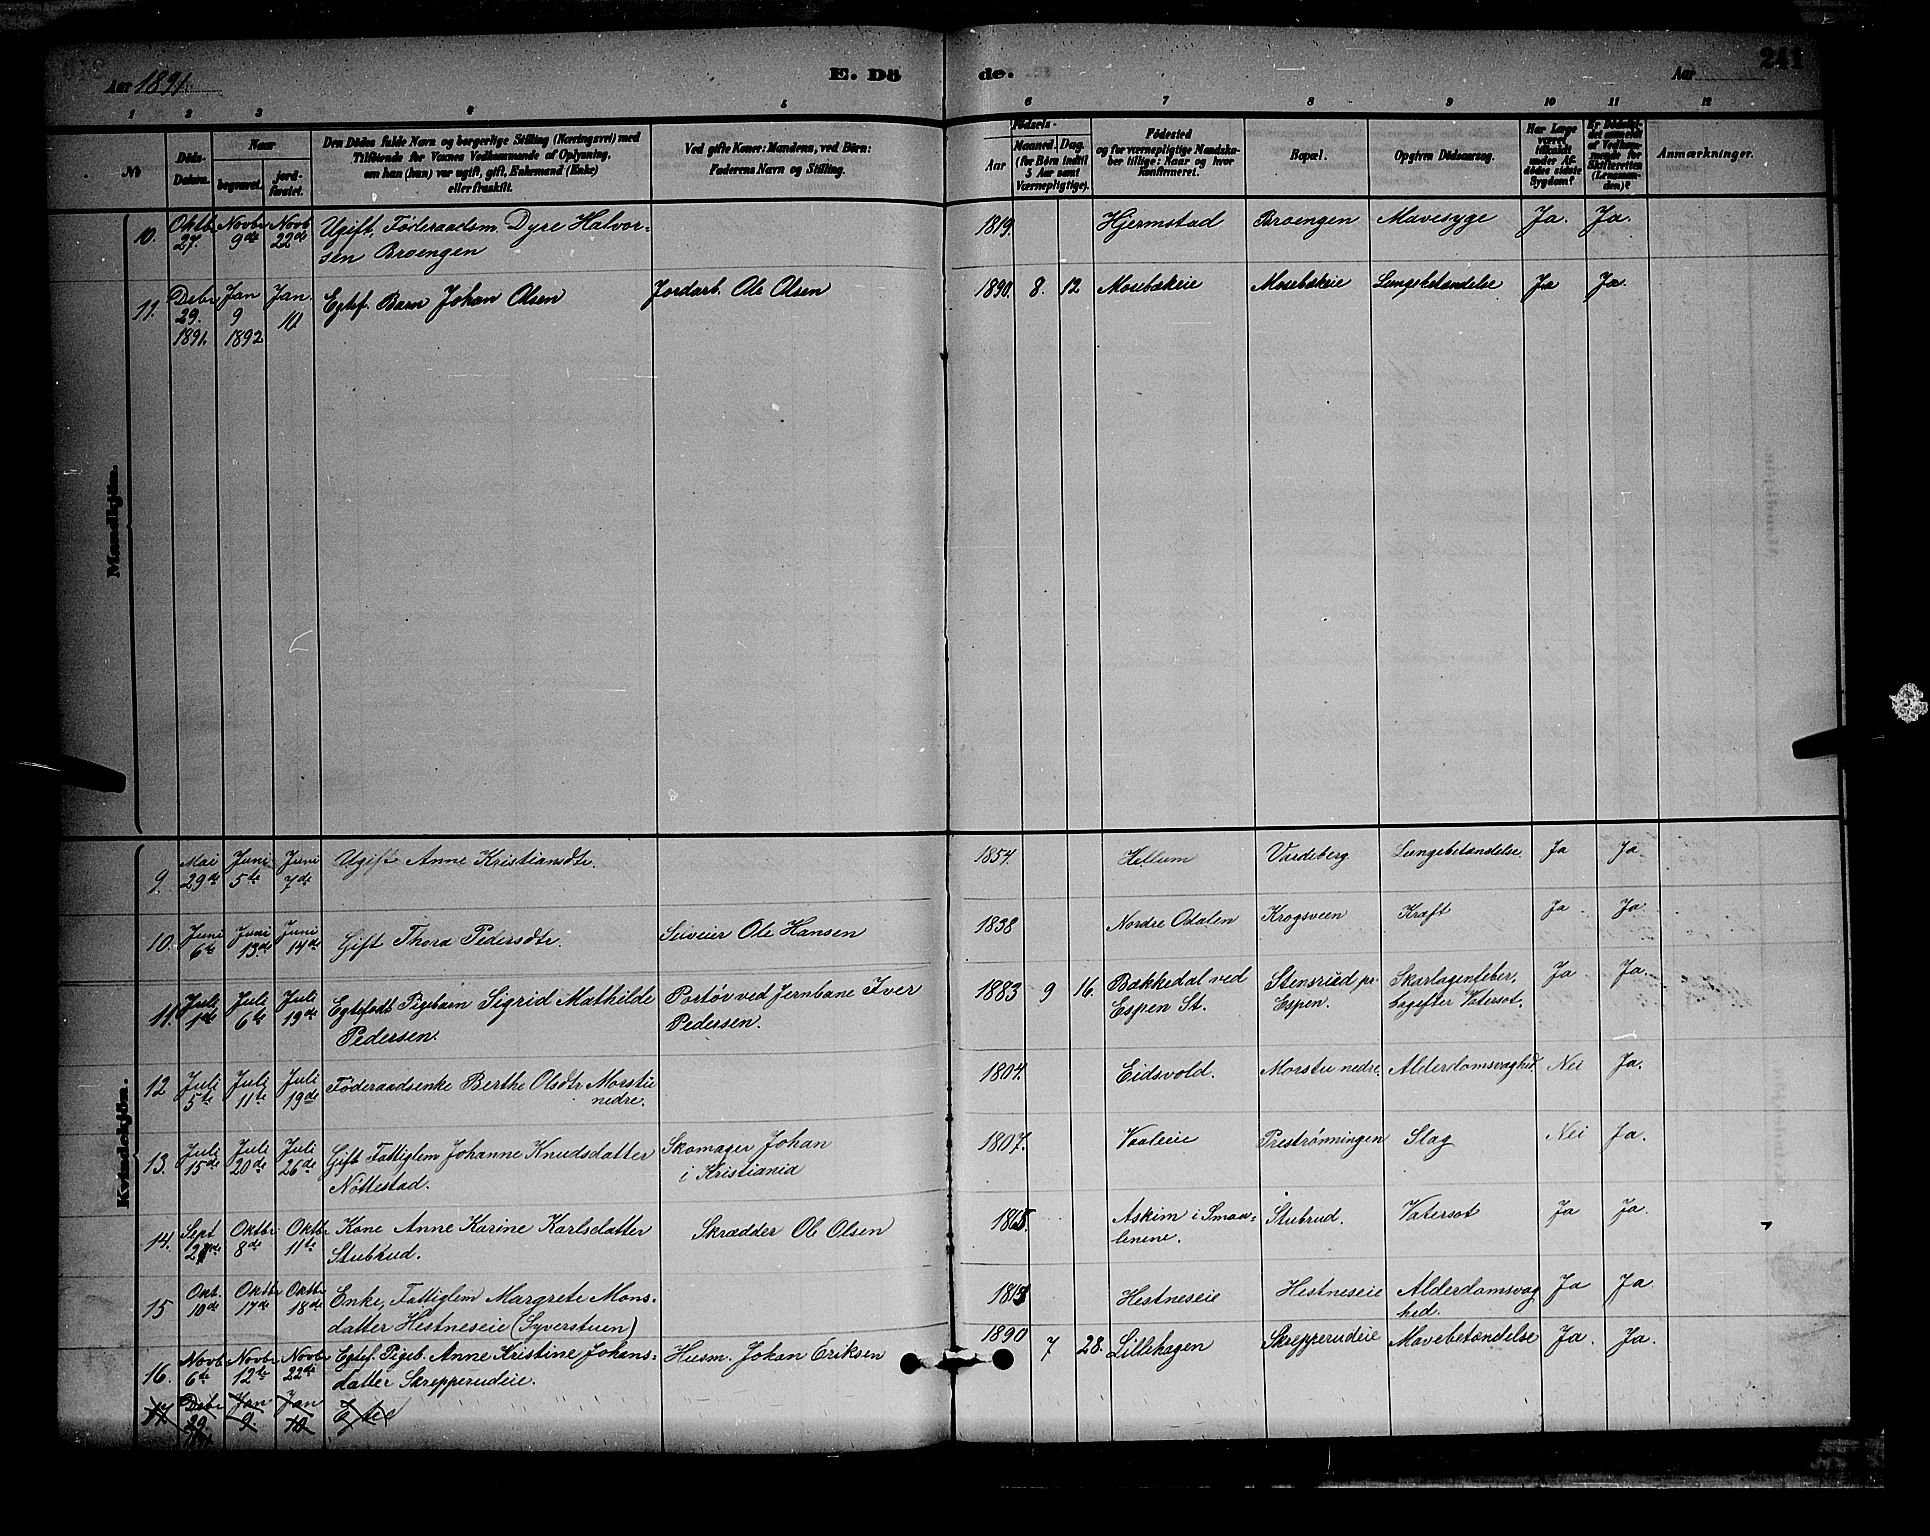 Aar 1891. E. Dö de. Aar 241
1 2 3 4 5 6 7 8 9 10 11 12
No
Döds-Datum.
Naar
begravet.
jord-fæstet.
Den Dödes fulde Navn og borgerlige Stilling (Næringsvei) med
Tilföiende for Voxnes Vedkommende af Oplysning,
om han (hun) var ugift, gift, Enkemand (Enke)
eller fraskilt.
Ved gifte Koner: Mandens, ved Börn:
Faderens Navn og Stilling.
Födsels-
Aar
Maaned. Dag.
(for Börn indtil
5 Aar samt
Værnepligtige).
Födested
og for værnepligtige Mandska-
ber tillige: Naar og hvor
konfirmeret.
Bopæl.
Opgiven Dödsaarsag.
Har Læge
været
tilkaldt
under Af-
dödes sidste
Sygdom?
Er Dödsfal-
det anmeldt
af Vedkom-
mende for
Skifteretten
(Lensman-
den)?
Anmærkninger.
Mandkjön.
10. Oktb. 27. Novbr 9de Novb 22de Ugift, Føderaadsm. Dyre Halvor-
sen Broengen 1819. Hjermstad Broengen Mavesyge Ja. Ja.
11. Debr 29. 1891. Jan 9 1892 Jan. 10 Egtef. Barn Johan Olsen Jordarb. Ole Olsen 1890. 8. 12 Mosebækeie Mosebækeie Lungebetændelse Ja Ja.
Kvindekjön.
9. Mai 29de Juni 5te Juni 7de Ugift Anne Kristiansdtr. 1854 Hellum Vardeberg Lungebetændelse Ja Ja
10. Juni 6te Juni 13de Juni 14de Gift Thora Pedersdtr. Seiveier Ole Hansen 1838 Nordre Odalen Krogsveen Kræft Ja Ja.
11. Juli 1de Juli 6te Juli 19de Egtefødt Pigebarn Sigrid Mathilde
Pedersen. Portør ved Jernbane Iver
Pedersen. 1883 9 16. Bakkedal ved
Espen St. Stensrud pr
Espen. Skarlagenfeber,
bagefter Vatersot. Ja Ja.
12 Juli 5te Juli 11te Juli 19de Føderaadsenke Berthe Olsdtr Morstu
nedre. 1804. Eidsvold. Morstu nedre. Alderdomsvaghed Nei Ja.
13. Juli 15de Juli 20de Juli 26de Gift Fattiglem Johanne Knudsdatter
Nøttestad. Skomager Johan
i Kristiania 1807. Vaaleie Prestrønningen Slag Nei Ja.
14. Sept Oktbr 8de Oktbr 11te Kone Anne Karine Karlsdatter
Stubrud. Skrædder Ole Olsen 1865. Askim i Smaa-
lenene. Stubrud. Vatersot Ja Ja.
15 Okt. 10de Oktb 17de Oktbr 18de Enke, Fattiglem Margrete Mons-
datter Hestneseie (Syverstuen) 1813 Hestneseie Hestneseie Alderdomsvag
hed. Ja Ja
16. Novb 6te Novbr 12te Novbr 22de Egtef. Pigeb. Anne Kristine Johans-
datter Skrepperudeie. Husm. Johan Eriksen 1890 7 28. Lillehagen Skrepperudeie Mavebetændelse Ja. Ja.
17 Debr 29 1891 Jan 9. Jan 10 Egtef